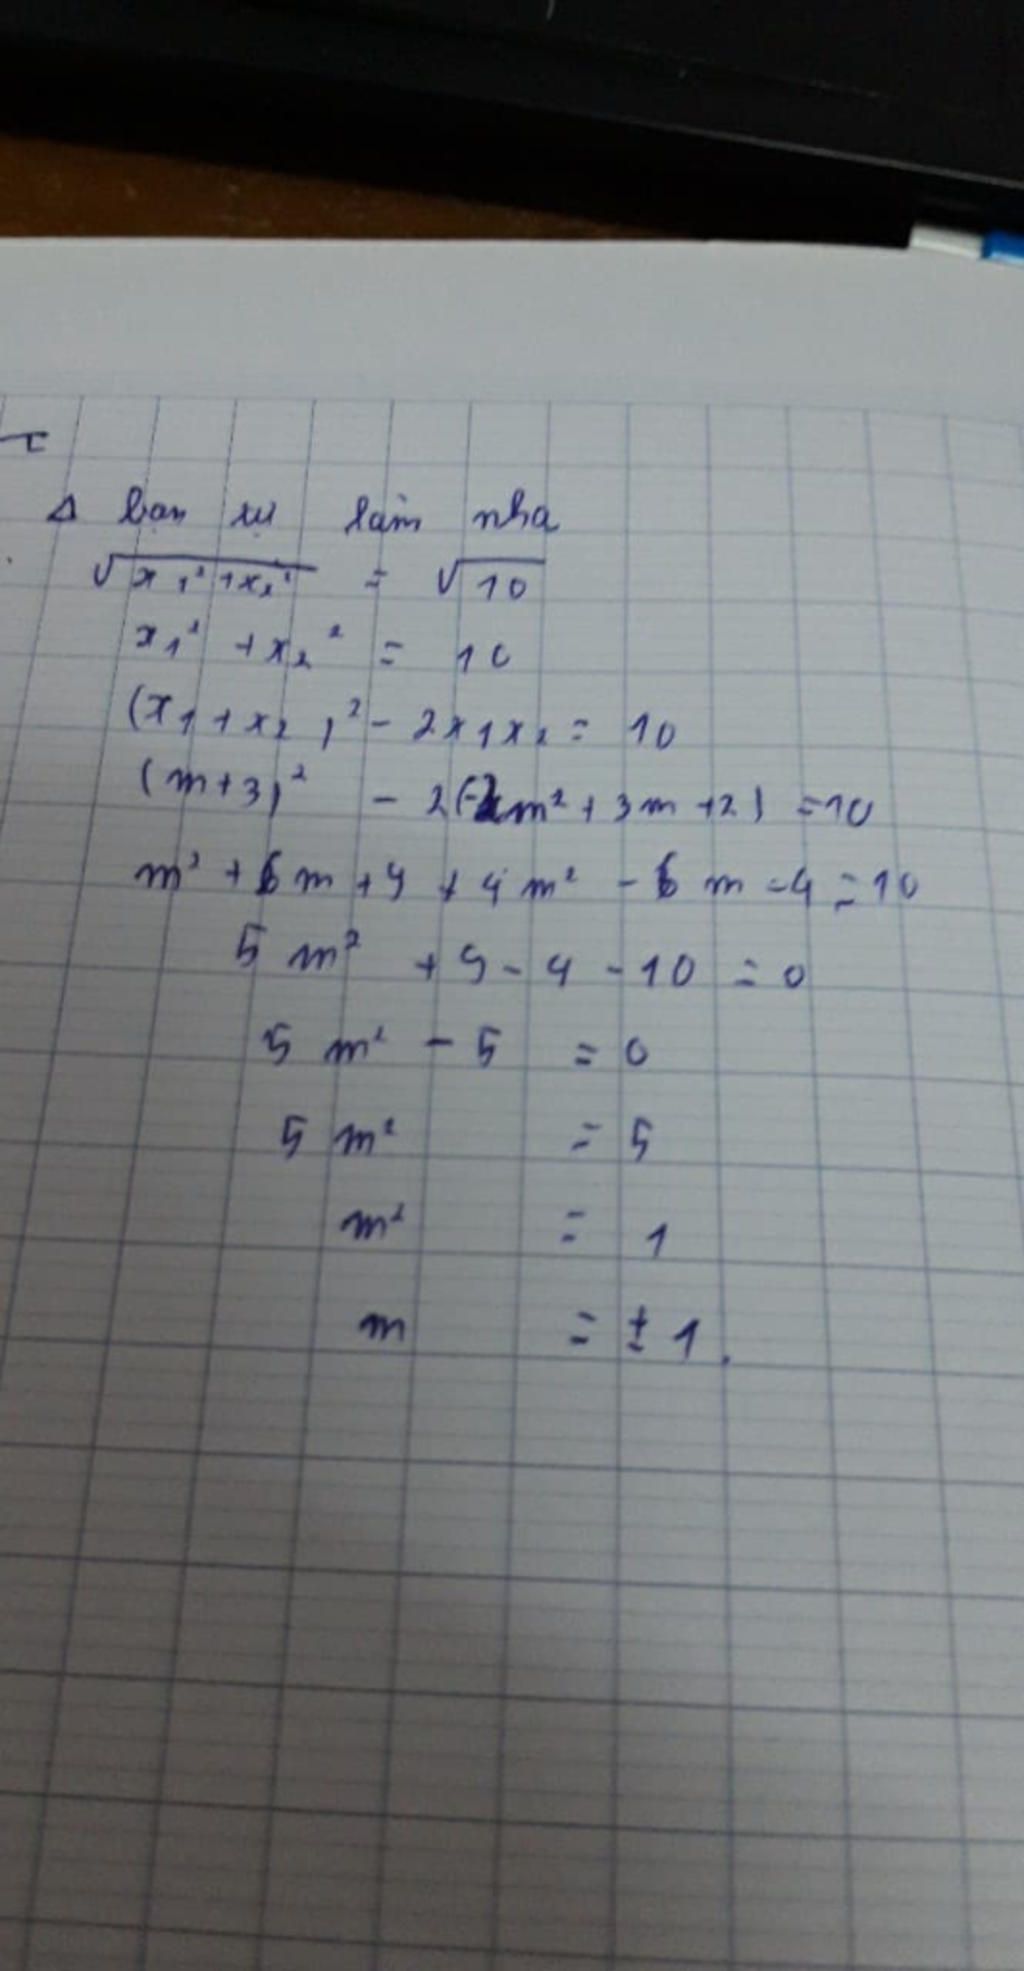 Δ bạn tự làm nha
√(x₁² + x₂²) = √10
x₁² + x₂² = 10
(x₁ + x₂)² - 2x₁x₂ = 10
(m+3)² - 2(-2m² + 3m + 2) = 10
m² + 6m + 9 + 4m² - 6m - 4 = 10
5m² + 9 - 4 - 10 = 0
5m² - 5 = 0
5m² = 5
m² = 1
m = ± 1.